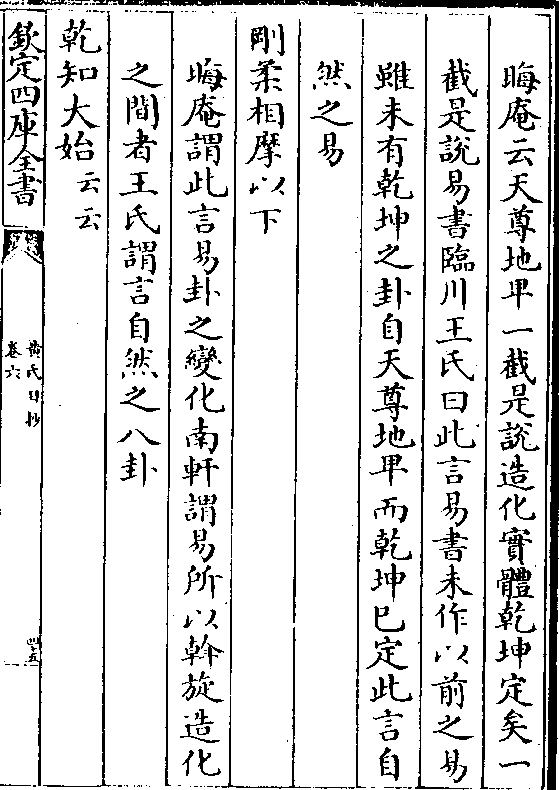 晦庵云天尊地卑一截是說造化實體乾坤定矣一
截是說易書臨川王氏曰此言易書未作以前之易
雖未有乾坤之卦自天尊地卑而乾坤已定此言自
然之易
剛柔相摩以下
晦庵謂此言易卦之變化南軒謂易所以斡旋造化
之間者王氏謂言自然之八卦
乾知大始云云
欽定四庫全書
黃氏日抄
卷六
四十五